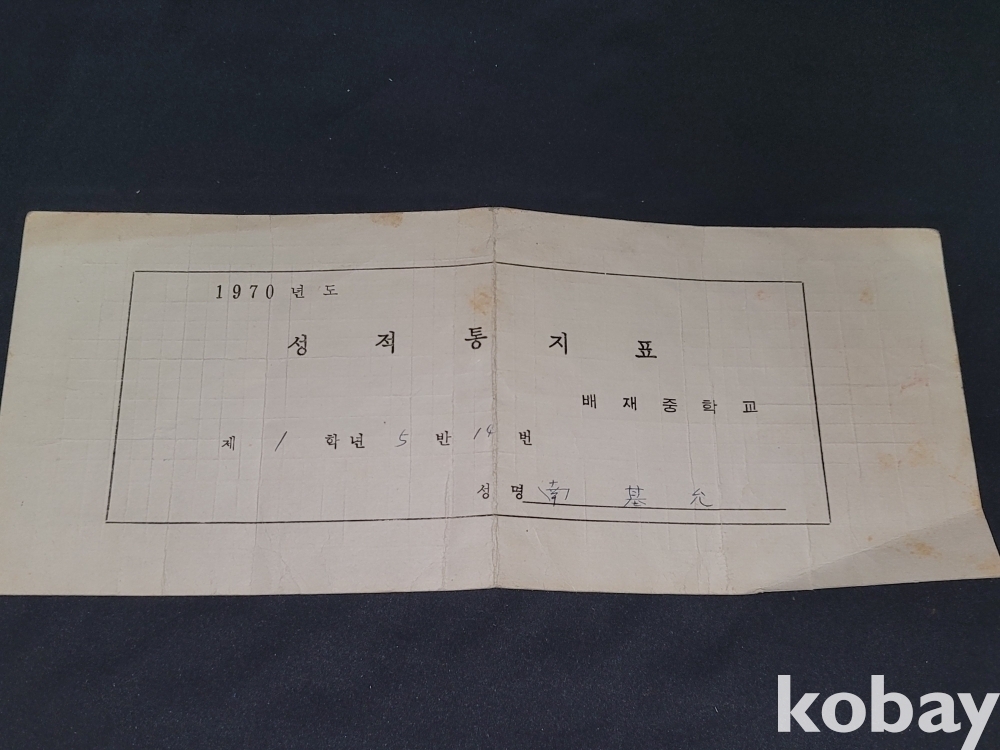 1970년도
성적통지표
배재중학교
제 1 학년 5 반 14 번
성명 南基允
kobay